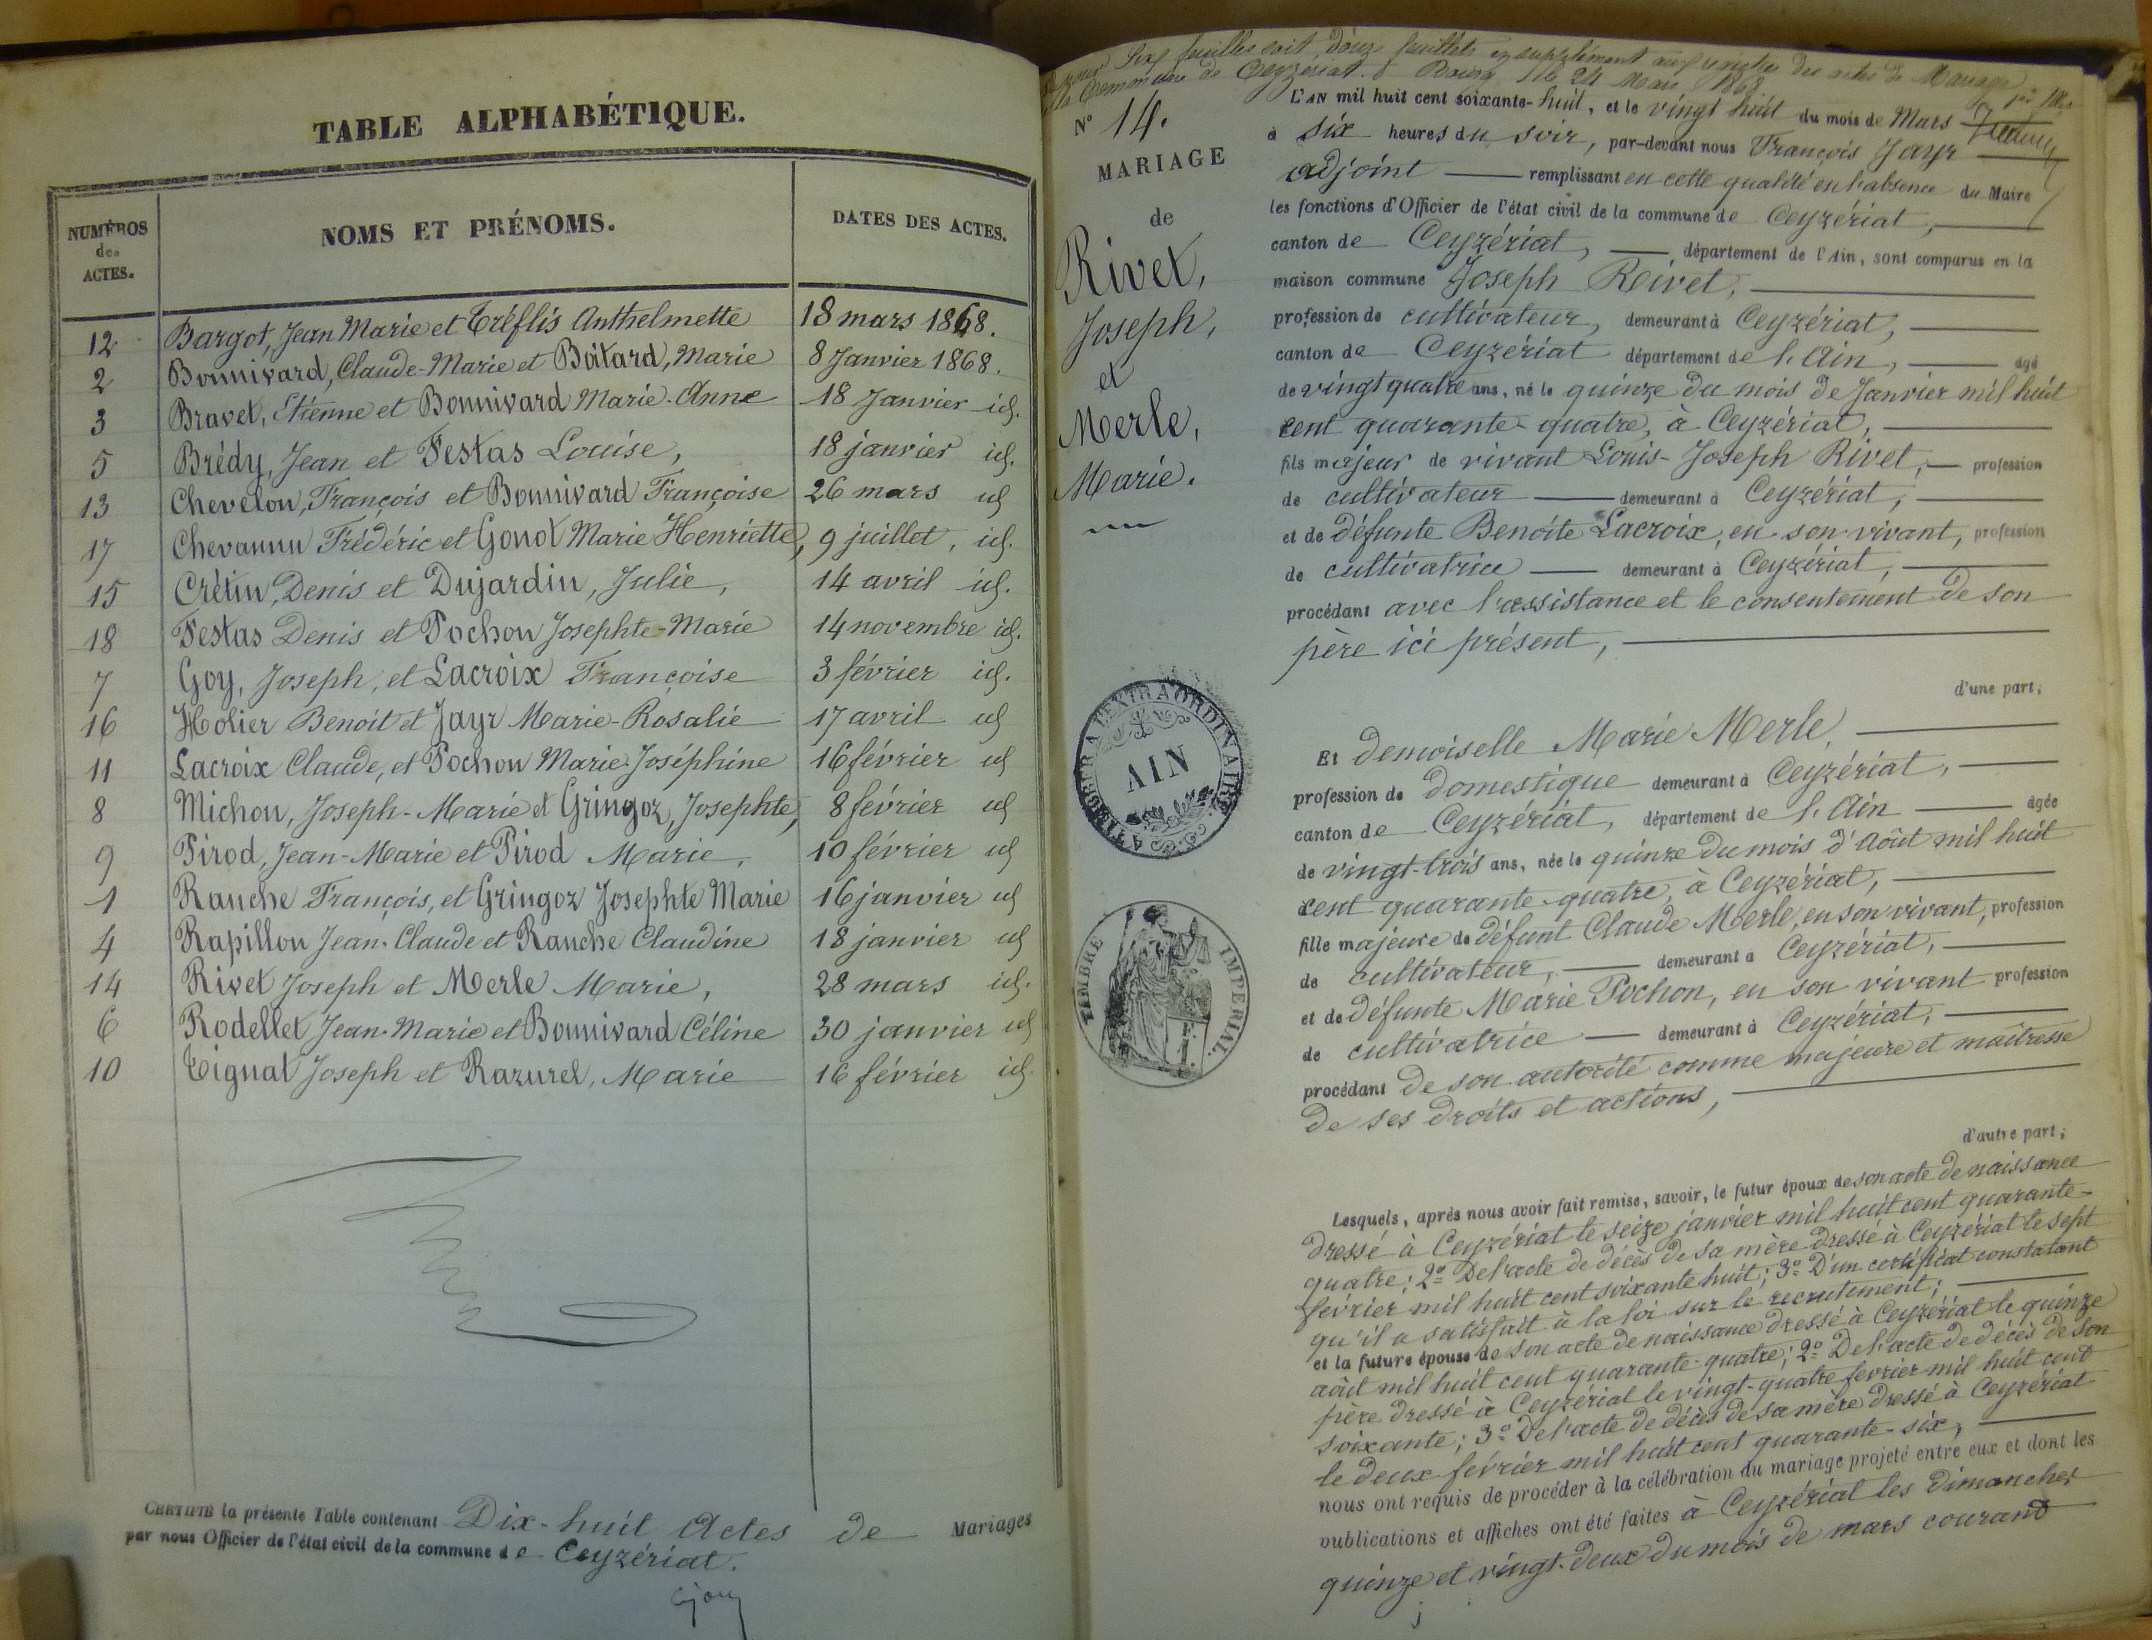 TABLE ALPHABÉTIQUE.
NUMÉROS des ACTES.
NOMS ET PRÉNOMS.
DATES DES ACTES.
12 Bargot, Jean Marie et Tréflis Anthelmette 18 mars 1868.
2 Bonnivard, Claude-Marie et Boitard, Marie 8 Janvier 1868.
3 Bravet, Etienne et Bonnivard Marie-Anne 18 Janvier id.
5 Brédy, Jean et Festas Louise, 18 janvier id.
13 Chevelon, François et Bonnivard Françoise 26 mars id
17 Chevannu Frédéric et Gonot Marie Henriette, 9 juillet, id.
15 Crétin, Denis et Dujardin, Julie, 14 avril id.
18 Festas Denis et Pochon Josephte-Marie 14 novembre id.
7 Goy, Joseph, et Lacroix Françoise 3 février id.
16 Holier Benoit et Jayr Marie-Rosalie 17 avril id
11 Lacroix Claude, et Pochon Marie Joséphine 16 février id
8 Michon, Joseph-Marie et Gringoz, Josephte, 8 février id
9 Pirod, Jean-Marie et Pirod Marie, 10 février id
1 Ranche François, et Gringoz Josephte Marie 16 janvier id
4 Rapillon Jean-Claude et Ranche Claudine 18 janvier id
14 Rivet Joseph et Merle Marie, 28 mars id.
6 Rodellet Jean-Marie et Bonnivard Céline 30 janvier id
10 Tignat Joseph et Razurel, Marie 16 février id.
CERTIFIÉ la présente Table contenant Dix-huit Actes de Mariages
par nous Officier de l'état civil de la commune de Ceyzériat.
Six feuilles soit douze feuillets en supplément aux registres des actes de Mariage
la Commune de Ceyzériat. Bourg, le 24 Mars 1868
N° 14.
MARIAGE
de
Rivet,
Joseph,
et
Merle,
Marie.
A L'EXTRAORDINAIRE
AIN
TIMBRE IMPERIAL.
L'AN mil huit cent soixante-huit, et le vingt huit du mois de Mars
à six heures du soir, par-devant nous François Jayr
adjoint remplissant en cette qualité en l'absence du Maire
les fonctions d'Officier de l'état civil de la commune de Ceyzériat,
canton de Ceyzériat, département de l'Ain, sont comparus en la
maison commune Joseph Rivet,
profession de cultivateur, demeurant à Ceyzériat,
canton de Ceyzériat département de l'Ain, agé
de vingt quatre ans, né le quinze du mois de Janvier mil huit
cent quarante-quatre, à Ceyzériat,
fils majeur de vivant Louis-Joseph Rivet, profession
de cultivateur demeurant à Ceyzériat,
et de défunte Benoite Lacroix, en son vivant, profession
de cultivatrice demeurant à Ceyzériat,
procédant avec l'assistance et le consentement de son
père ici présent,
d'une part;
Et demoiselle Marie Merle,
profession de domestique demeurant à Ceyzériat,
canton de Ceyzériat, département de l'Ain agée
de vingt-trois ans, née le quinze du mois d'Août mil huit
cent quarante-quatre, à Ceyzériat,
fille majeure de défunt Claude Merle, en son vivant, profession
de cultivateur, demeurant à Ceyzériat,
et de défunte Marie Pochon, en son vivant profession
de cultivatrice demeurant à Ceyzériat,
procédant de son autorité comme majeure et maîtresse
de ses droits et actions,
d'autre part;
Lesquels, après nous avoir fait remise, savoir, le futur époux de son acte de naissance
dressé à Ceyzériat le seize janvier mil huit cent quarante-
quatre; 2° De l'acte de décès de sa mère dressé à Ceyzériat le sept
février mil huit cent soixante huit; 3° D'un certificat constatant
qu'il a satisfait à la loi sur le recrutement;
et la future épouse de son acte de naissance dressé à Ceyzériat le quinze
août mil huit cent quarante-quatre; 2° De l'acte de décès de son
père dressé à Ceyzériat le vingt-quatre fevrier mil huit cent
soixante; 3° De l'acte de décès de sa mère dressé à Ceyzériat
le deux fevrier mil huit cent quarante-six,
nous ont requis de procéder à la célébration du mariage projeté entre eux et dont les
publications et affiches ont été faites à Ceyzériat les dimanches
quinze et vingt-deux du mois de mars courant